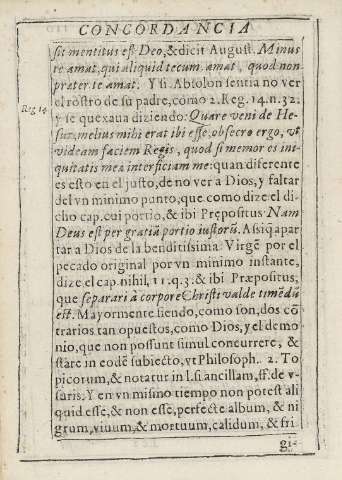 CONCORDANCIA
sit mentitus est Deo, & dicit August. Minus
te amat, qui aliquid tecum amat, quod non
propter te amat. Y si Absolon sentia no ver
el rostro de su padre, como 2. Reg. 14. n. 32.
Reg. 14
y se quexaua diziendo: Quare veni de Ge-
sur, melius mihi erat ibi esse, obsecro ergo, vt
videam faciem Regis, quod si memor es ini-
quitatis meæ interficiam me: quan diferente
es esto en el justo, de no ver a Dios, y faltar
del vn minimo punto, que como dize el di-
cho cap. cui portio, & ibi Præpositus Nam
Deus est per gratiã portio iustorũ. Assi q̃ apar
tar a Dios de la benditissima Virgẽ por el
pecado original por vn minimo instante,
dize el cap. nihil, 11. q. 3. & ibi Præpositus,
que separari à corpore Christi valde timẽdũ
est. Mayormente siendo, como son, dos cõ
trarios tan opuestos, como Dios, y el demo
nio, que non possunt simul concurrere, &
stare in eodẽ subiecto, vt Philosoph. 2. To
picorum, & notatur in l. si ancillam, ff. de v-
suris. Y en vn mismo tiempo non potest ali
quid esse, & non esse, perfecte album, & ni
grum, viuum, & mortuum, calidum, & fri-
gi-